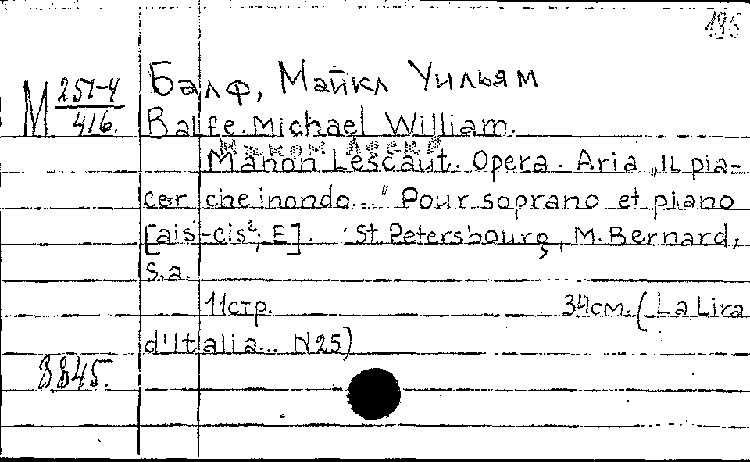 195
Балф, Майкл Уильям
М 257-4/416.
Balfe. Michael William.
Манон Леско
Manon Lescaut. Opera. Aria „Il pia-
cer che inondo..." Pour soprano et piano
[ais-cis²; E]. St. Petersbourg, M. Bernard,
s.a.
11стр. 34см. (La Lira
d'Italia... N25)
8845.